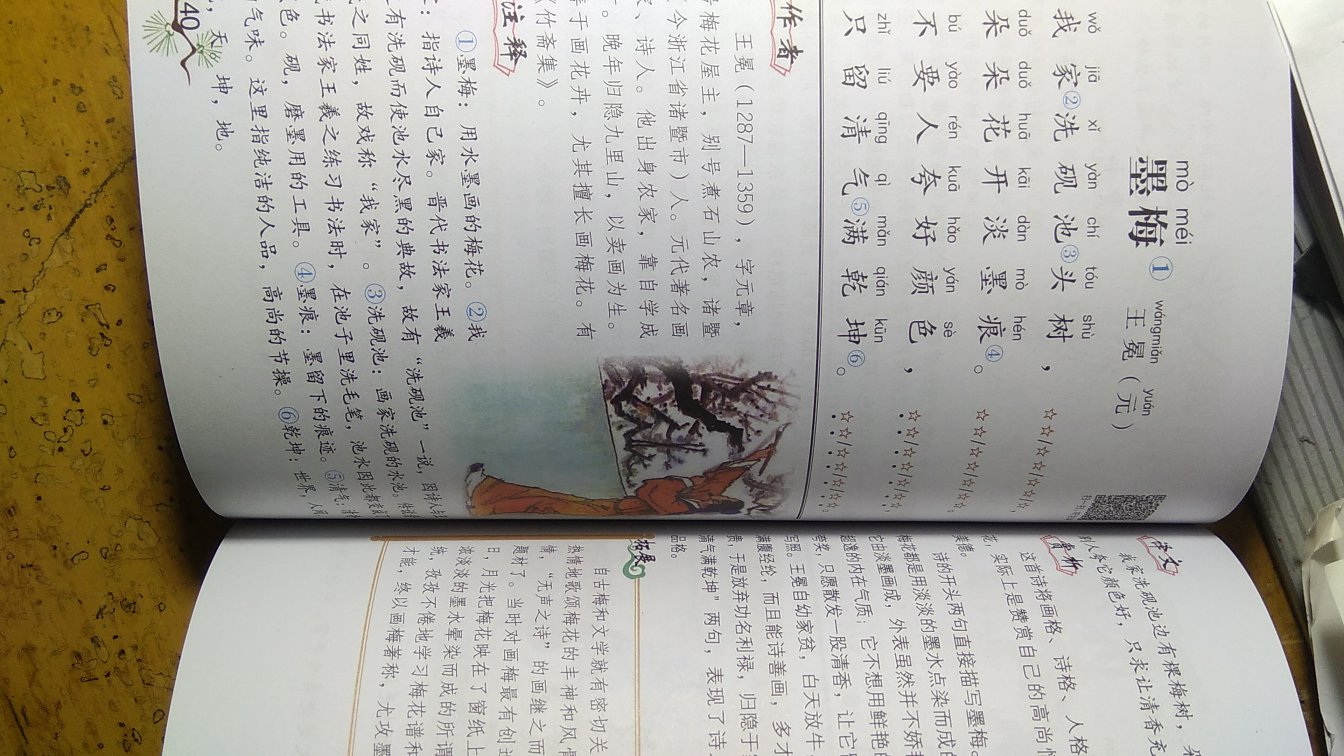 mò méi
墨梅①
wángmiǎn yuán
王冕（元）
wǒ jiā xǐ yàn chí tóu shù
我家②洗砚池③头树，
duǒ duǒ huā kāi dàn mò hén
朵朵花开淡墨痕④。
bú yào rén kuā hǎo yán sè
不要人夸好颜色，
zhǐ liú qīng qì mǎn qián kūn
只留清气⑤满乾坤⑥。
作者
王冕（1287—1359），字元章，
号梅花屋主，别号煮石山农，诸暨
（今浙江省诸暨市）人。元代著名画
家、诗人。他出身农家，靠自学成
。晚年归隐九里山，以卖画为生。
善于画花卉，尤其擅长画梅花。有
《竹斋集》。
注释
①墨梅：用水墨画的梅花。②我
家：指诗人自己家。晋代书法家王羲
之有洗砚而使池水尽黑的典故，故有“洗砚池”一说，因诗人与
之同姓，故戏称“我家”。③洗砚池：画家洗砚的水池。
书法家王羲之练习书法时，在池子里洗毛笔，池水因此都变
色。砚，磨墨用的工具。④墨痕：墨留下的痕迹。⑤清气：
气味。这里指纯洁的人品，高尚的节操。⑥乾坤：世界，人间
，天 坤，地。
40
译文
我家洗砚池边有棵梅树，
别人夸它颜色好，只求让清香
赏析
这首诗将画格、诗格、人格
花，实际上是赞赏自己的高尚
美德。
诗的开头两句直接描写墨梅。
梅花都是用淡淡的墨水点染而成的
它由淡墨画成，外表虽然并不娇
超逸的内在气质；它不想用鲜艳
夸奖，只愿散发一股清香，让它
写照。王冕自幼家贫，白天放牛
满腹经纶，而且能诗善画，多才
贵，于是放弃功名利禄，归隐于
清气满乾坤”两句，表现了诗
品格。
拓展
自古梅和文学就有密切关
热情地歌颂梅花的丰神和风
情，“无声之诗”的画继之而
题材了。当时对画梅最有创
日，月光把梅花映在了窗纸上
浓淡淡的墨水晕染而成的所谓
统，孜孜不倦地学习梅花谱和
才能，终以画梅著称，尤攻墨